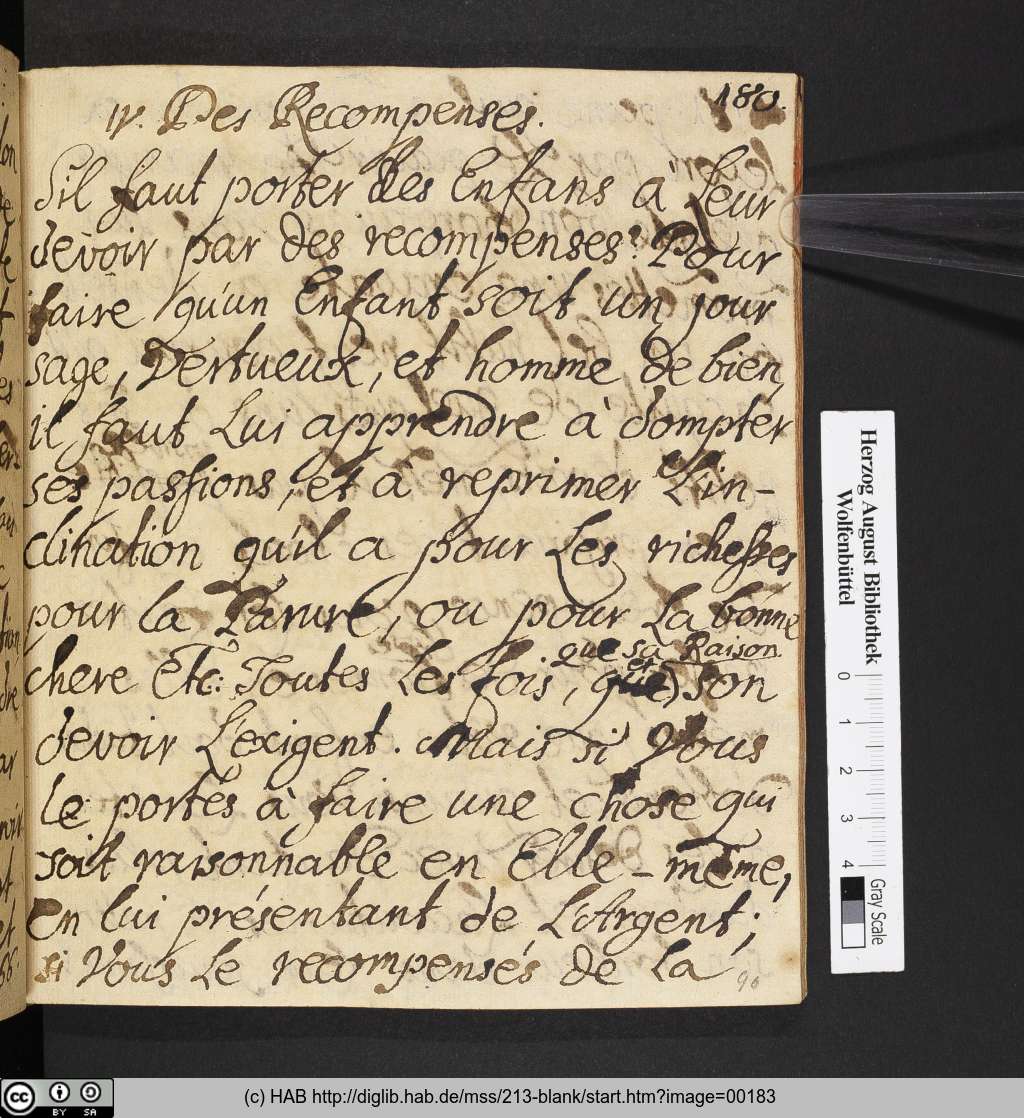 180.
IV. Des Recompenses.
S'il faut porter des Enfans a leur
devoir par des recompenses? Pour
faire qu'un Enfant soit un jour
sage, Vertueux, et homme de bien,
il faut Lui apprendre à dompter
ses passions, et à reprimer L'in-
clination qu'il a pour Les richesses
pour la Parure, ou pour La bonne
que sa Raison
chere Etc: Toutes Les fois, et son
devoir L'exigent. Mais si Vous
le portés à faire une chose qui
soit raisonnable en Elle-même,
En lui présentant de L'Argent;
si Vous Le recompensés de La
96
Herzog August Bibliothek
Wolfenbüttel
0 1 2 3 4
Gray Scale
cc BY SA
(c) HAB http://diglib.hab.de/mss/213-blank/start.htm?image=00183